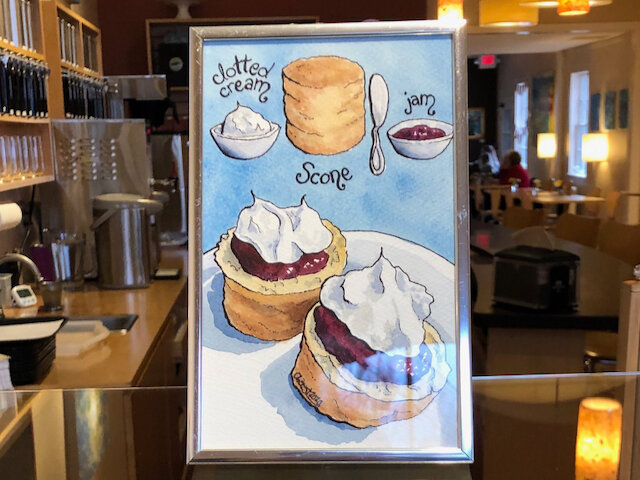 clotted
cream
jam
Scone